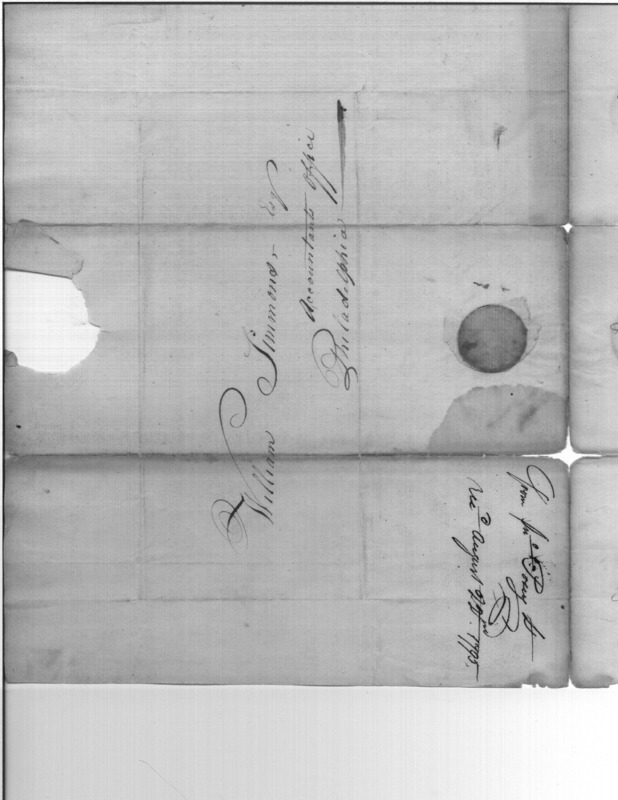 William Simmons, Esqr
Accountants Office
Philadelphia
From
Recd August 22nd 1795.